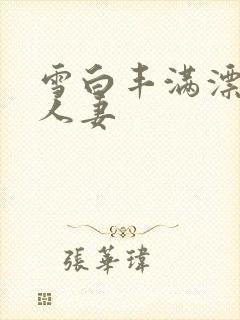 雪白丰满漂
人妻
張華瑋